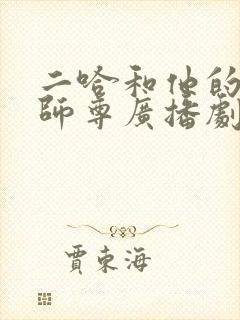 二哈和他的
師尊廣播劇
賈東海